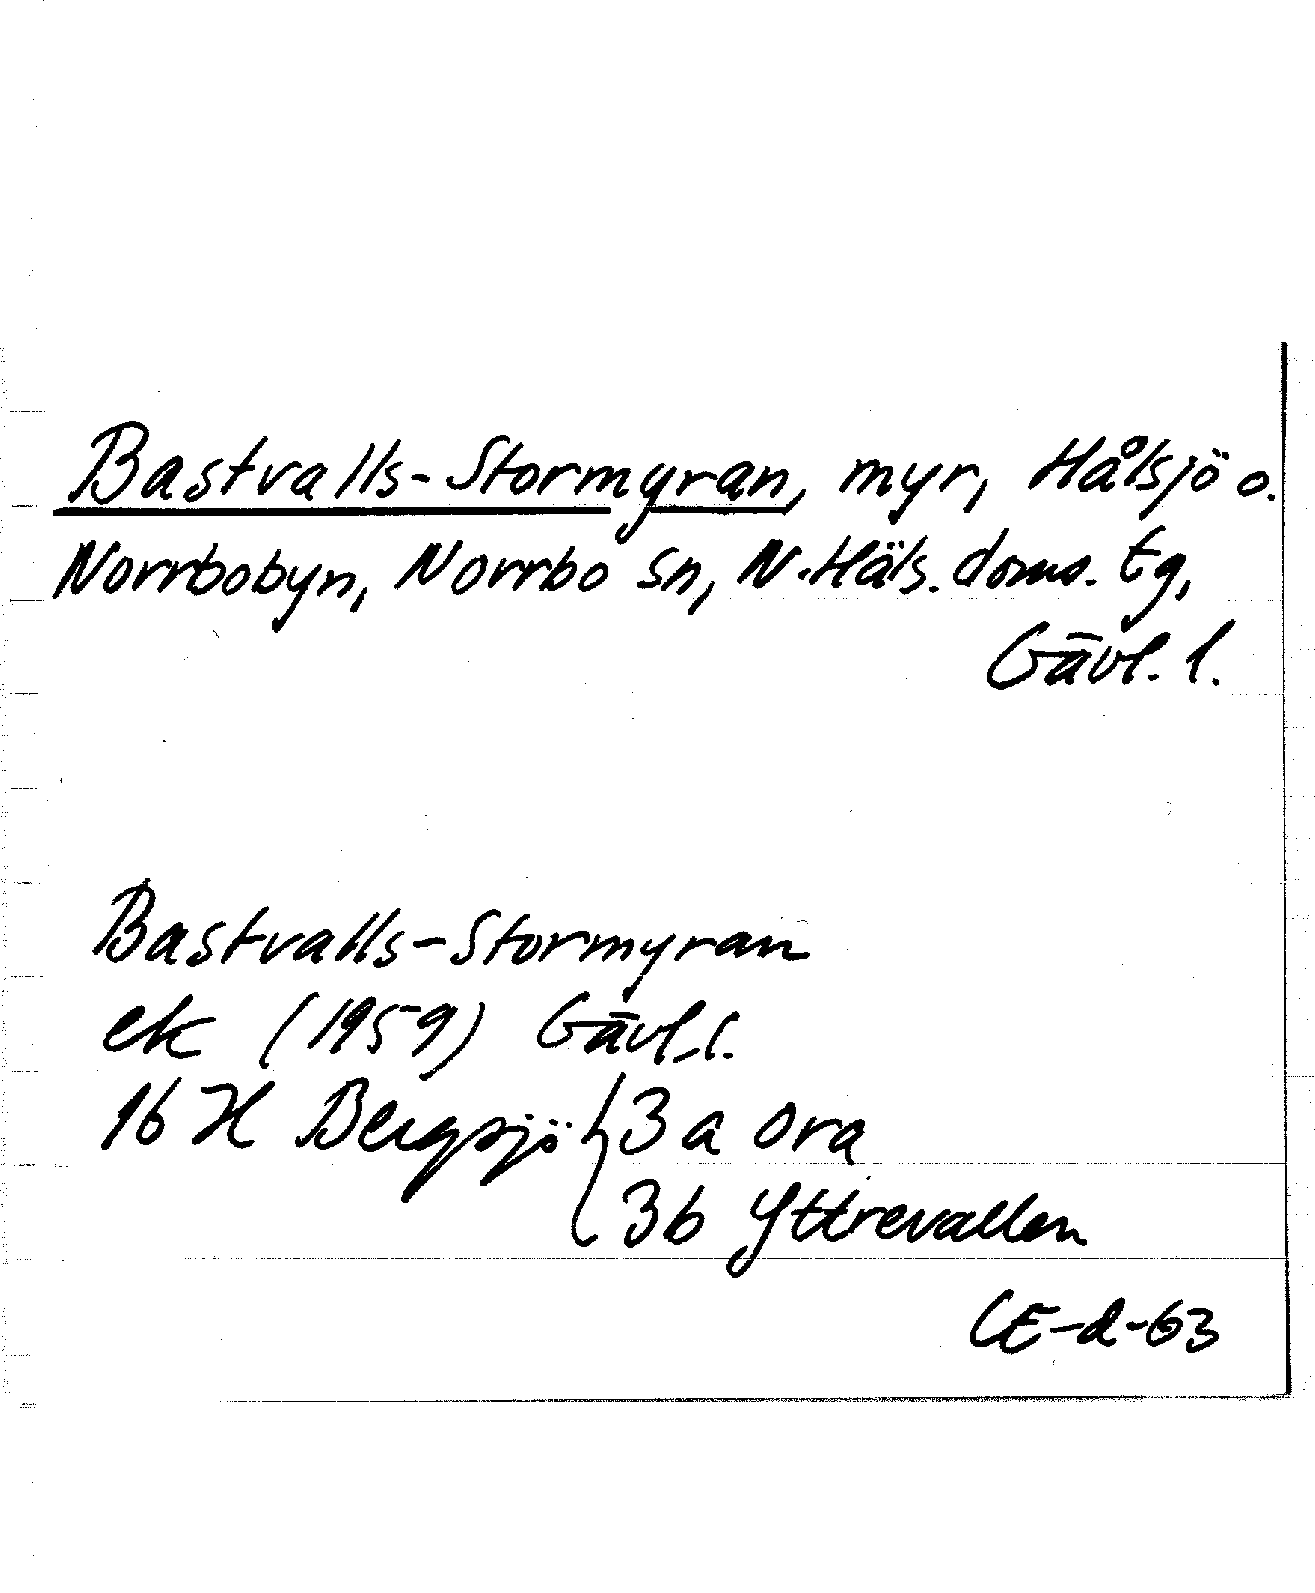 Bastvalls-Stormyran, myr, Hålsjö o.
Norrbobyn, Norrbo sn, N. Häls. doms. tg,
Gävl. l.
Bastvalls-Stormyran
ek (1959) Gävl. l.
16 H Bergsjö { 3 a Ora
3b Yttrevallen
CE-d-63